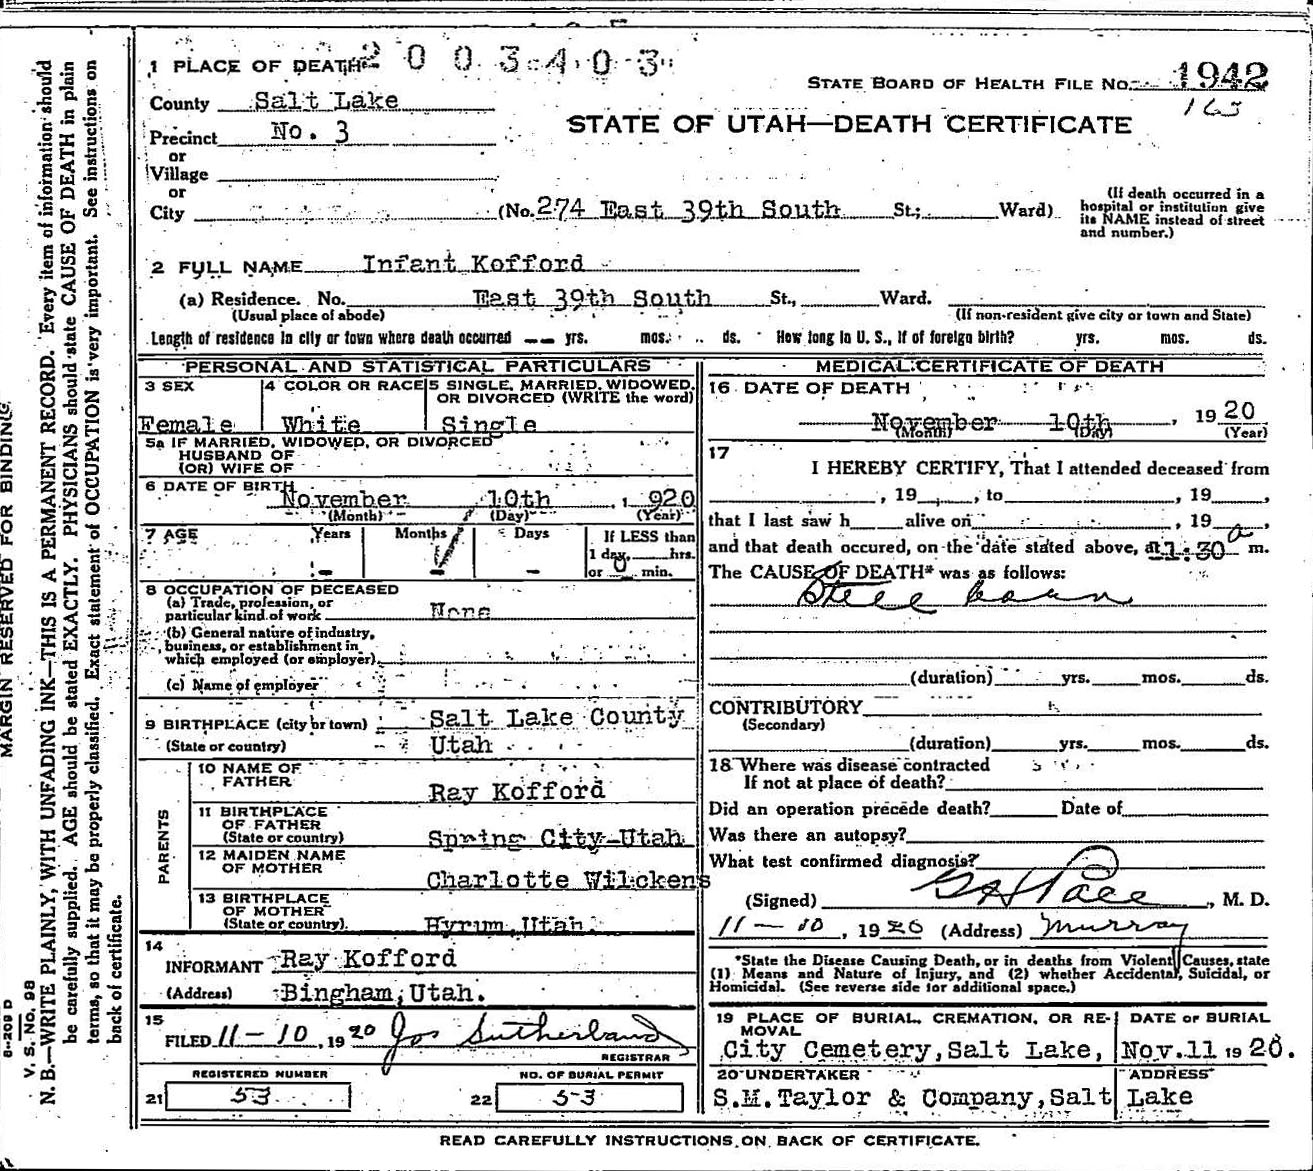 2003403
1 PLACE OF DEATH
STATE BOARD OF HEALTH FILE No. 1942
County Salt Lake
163
Precinct No. 3
STATE OF UTAH—DEATH CERTIFICATE
or
Village
or
City (No. 274 East 39th South St.; Ward)
(If death occurred in a
hospital or institution give
its NAME instead of street
and number.)
2 FULL NAME Infant Kofford
(a) Residence. No. East 39th South St., Ward.
(Usual place of abode) (If non-resident give city or town and State)
Length of residence in city or town where death occurred -- yrs. mos. ds. How long in U. S., if of foreign birth? yrs. mos. ds.
PERSONAL AND STATISTICAL PARTICULARS
3 SEX
Female
4 COLOR OR RACE
White
5 SINGLE, MARRIED, WIDOWED,
OR DIVORCED (WRITE the word)
Single
5a IF MARRIED, WIDOWED, OR DIVORCED
HUSBAND OF
(OR) WIFE OF
6 DATE OF BIRTH
November 10th, 1920
(Month) (Day) (Year)
7 AGE Years Months Days If LESS than
1 day, hrs.
- - - or 0 min.
8 OCCUPATION OF DECEASED
(a) Trade, profession, or
particular kind of work None
(b) General nature of industry,
business, or establishment in
which employed (or employer)
(c) Name of employer
9 BIRTHPLACE (city or town) Salt Lake County
(State or country) Utah
PARENTS
10 NAME OF
FATHER
Ray Kofford
11 BIRTHPLACE
OF FATHER
(State or country) Spring City-Utah
12 MAIDEN NAME
OF MOTHER
Charlotte Wilckens
13 BIRTHPLACE
OF MOTHER
(State or country). Hyrum, Utah.
14
INFORMANT Ray Kofford
(Address) Bingham, Utah.
15
FILED 11-10, 1920 Jos Sutherland
REGISTRAR
REGISTERED NUMBER NO. OF BURIAL PERMIT
21 53 22 53
MEDICAL CERTIFICATE OF DEATH
16 DATE OF DEATH
November 10th, 1920
(Month) (Day) (Year)
17
I HEREBY CERTIFY, That I attended deceased from
, 19 , to , 19 ,
that I last saw h alive on , 19 ,
and that death occured, on the date stated above, at 1:30 a m.
The CAUSE OF DEATH* was as follows:
Still born
(duration) yrs. mos. ds.
CONTRIBUTORY
(Secondary)
(duration) yrs. mos. ds.
18 Where was disease contracted
If not at place of death?
Did an operation precede death? Date of
Was there an autopsy?
What test confirmed diagnosis?
(Signed) Pace, M. D.
11-10, 1920 (Address) Murray
*State the Disease Causing Death, or in deaths from Violent Causes, state
(1) Means and Nature of Injury, and (2) whether Accidental, Suicidal, or
Homicidal. (See reverse side for additional space.)
19 PLACE OF BURIAL, CREMATION, OR RE-
MOVAL
City Cemetery, Salt Lake,
DATE OF BURIAL
Nov. 11 1920.
20 UNDERTAKER ADDRESS
S.M. Taylor & Company, Salt Lake
READ CAREFULLY INSTRUCTIONS ON BACK OF CERTIFICATE.
MARGIN RESERVED FOR BINDING
V. S. NO. 98
N. B.—WRITE PLAINLY, WITH UNFADING INK—THIS IS A PERMANENT RECORD. Every item of information should
be carefully supplied. AGE should be stated EXACTLY. PHYSICIANS should state CAUSE OF DEATH in plain
terms, so that it may be properly classified. Exact statement of OCCUPATION is very important. See instructions on
back of certificate.